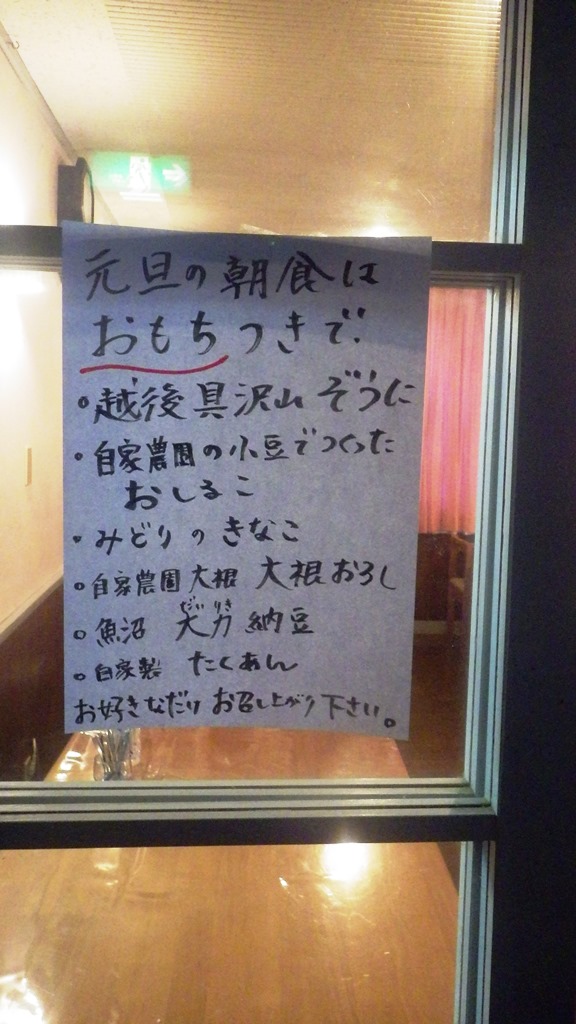 元旦の朝食は
おもちつきで.
・越後具沢山ぞうに
・自家農園の小豆でつくった
おしるこ
・みどりのきなこ
・自家農園大根 大根おろし
・魚沼 大力納豆
だいりき
・自家製 たくあん
お好きなだけ お召し上がり下さい。